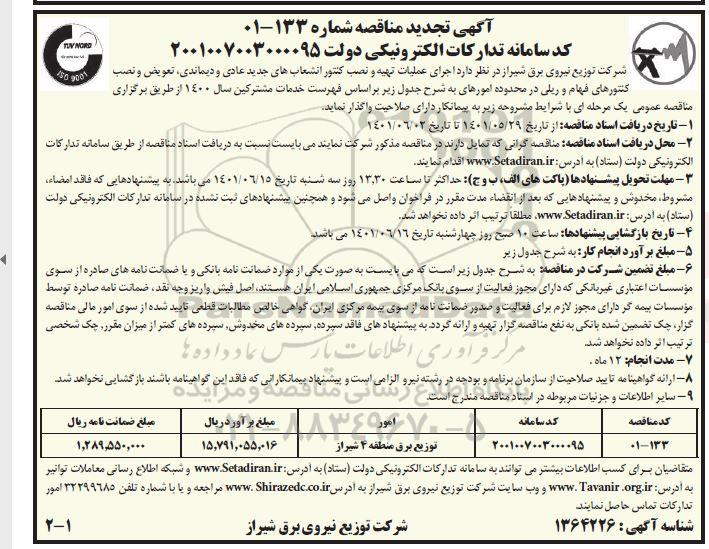 آگهی تجدید مناقصه شماره ۱۳۳-۰۱
کد سامانه تدارکات الکترونیکی دولت ۲۰۰۱۰۰۷۰۰۳۰۰۰۰۹۵
TUV NORD
ISO 9001
شرکت توزیع نیروی برق شیراز در نظر دارد اجرای عملیات تهیه و نصب کنتور انشعاب های جدید عادی و دیماندی، تعویض و نصب
کنتورهای فهام و ریلی در محدوده امورهای به شرح جدول زیر براساس فهرست خدمات مشترکین سال ۱۴۰۰ از طریق برگزاری
مناقصه عمومی یک مرحله ای با شرایط مشروحه زیر به پیمانکار دارای صلاحیت واگذار نماید.
۱- تاریخ دریافت اسناد مناقصه: از تاریخ ۱۴۰۱/۰۵/۲۹ تا تاریخ ۱۴۰۱/۰۶/۰۲
۲- محل دریافت اسناد مناقصه: مناقصه گرانی که تمایل دارند در مناقصه مذکور شرکت نمایند می بایست نسبت به دریافت اسناد مناقصه از طریق سامانه تدارکات
الکترونیکی دولت (ستاد) به آدرس: www.Setadiran.ir اقدام نمایند.
۳- مهلت تحویل پیشنهادها (پاکت های الف، ب و ج): حداکثر تا ساعت ۱۳,۳۰ روز سه شنبه تاریخ ۱۴۰۱/۰۶/۱۵ می باشد. به پیشنهادهایی که فاقد امضاء،
مشروط، مخدوش و پیشنهادهایی که بعد از انقضاء مدت مقرر در فراخوان واصل می شود و همچنین پیشنهادهای ثبت نشده در سامانه تدارکات الکترونیکی دولت
(ستاد) به آدرس: www.Setadiran.ir، مطلقا ترتیب اثر داده نخواهد شد.
۴- تاریخ بازگشایی پیشنهادها: ساعت ۱۰ صبح روز چهارشنبه تاریخ ۱۴۰۱/۰۶/۱۶ می باشد.
۵- مبلغ برآورد انجام کار: به شرح جدول زیر
۶- مبلغ تضمین شرکت در مناقصه: به شرح جدول زیر است که می بایست به صورت یکی از موارد ضمانت نامه بانکی و یا ضمانت نامه های صادره از سوی
مؤسسات اعتباری غیربانکی که دارای مجوز فعالیت از سوی بانک مرکزی جمهوری اسلامی ایران هستند، اصل فیش واریز وجه نقد، ضمانت نامه صادره توسط
مؤسسات بیمه گر دارای مجوز لازم برای فعالیت و صدور ضمانت نامه از سوی بیمه مرکزی ایران، گواهی خالص مطالبات قطعی تایید شده از سوی امور مالی مناقصه
گزار، چک تضمین شده بانکی به نفع مناقصه گزار تهیه و ارائه گردد. به پیشنهاد های فاقد سپرده، سپرده های مخدوش، سپرده های کمتر از میزان مقرر، چک شخصی
ترتیب اثر داده نخواهد شد.
۷- مدت انجام: ۱۲ ماه.
۸- ارائه گواهینامه تایید صلاحیت از سازمان برنامه و بودجه در رشته نیرو الزامی است و پیشنهاد پیمانکارانی که فاقد این گواهینامه باشند بازگشایی نخواهد شد.
۹- سایر اطلاعات و جزئیات مربوطه در اسناد مناقصه مندرج است.
کد مناقصه کد سامانه امور مبلغ برآورد ریال مبلغ ضمانت نامه ریال
۰۱-۱۳۳ ۲۰۰۱۰۰۷۰۰۳۰۰۰۰۹۵ توزیع برق منطقه ۴ شیراز ۱۵,۷۹۱,۰۵۵,۰۱۶ ۱,۲۸۹,۵۵۰,۰۰۰
متقاضیان برای کسب اطلاعات بیشتر می توانند به سامانه تدارکات الکترونیکی دولت (ستاد) به آدرس: www.Setadiran.ir و شبکه اطلاع رسانی معاملات توانیر
به آدرس: www. Tavanir .org.ir و وب سایت شرکت توزیع نیروی برق شیراز به آدرس www. Shirazedc.co.ir مراجعه و یا با شماره تلفن ۳۲۲۹۹۶۸۵ امور
تدارکات تماس حاصل نمایند.
شناسه آگهی: ۱۳۶۴۲۲۶ شرکت توزیع نیروی برق شیراز ۲-۱
ParsNamadData
مرکز فرآوری اطلاعات پارس نماد داده ها
پایگاه اطلاع رسانی مناقصه و مزایده
۰۲۱-۸۸۳۴۹۶۷۰-۵